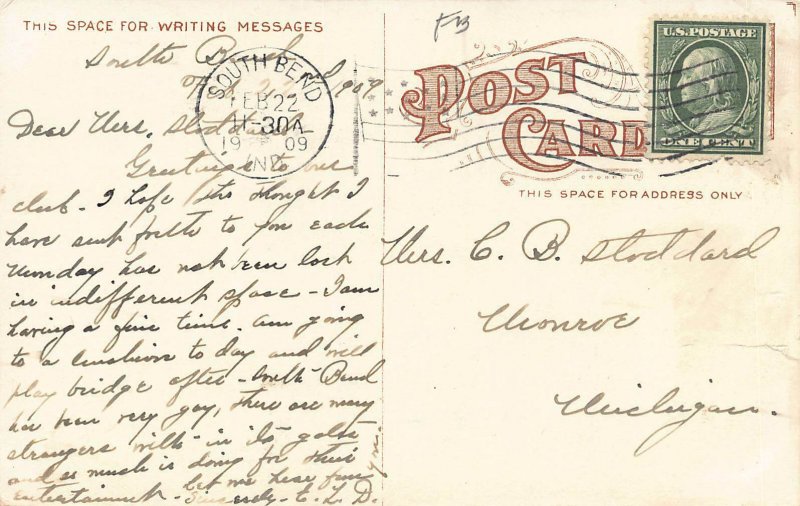 THIS SPACE FOR WRITING MESSAGES
South Bend
1909
SOUTH BEND
FEB 22
11-30A
1909
IND.
Dear Mrs. Stoddard
Greetings to our
club. I hope the thought I
have sent forth to you each
Monday has not been lost
in indifferent space - I am
having a fine time. Am going
to a luncheon to day and will
play bridge after - South Bend
has been very gay, there are many
strangers with-in its gates
and so much is doing for their
entertainment - Let me hear from
you.
Sincerely - C. L. D.
POST
CARD
U.S. POSTAGE
ONE CENT
THIS SPACE FOR ADDRESS ONLY
Mrs. C. B. Stoddard
Monroe
Michigan.